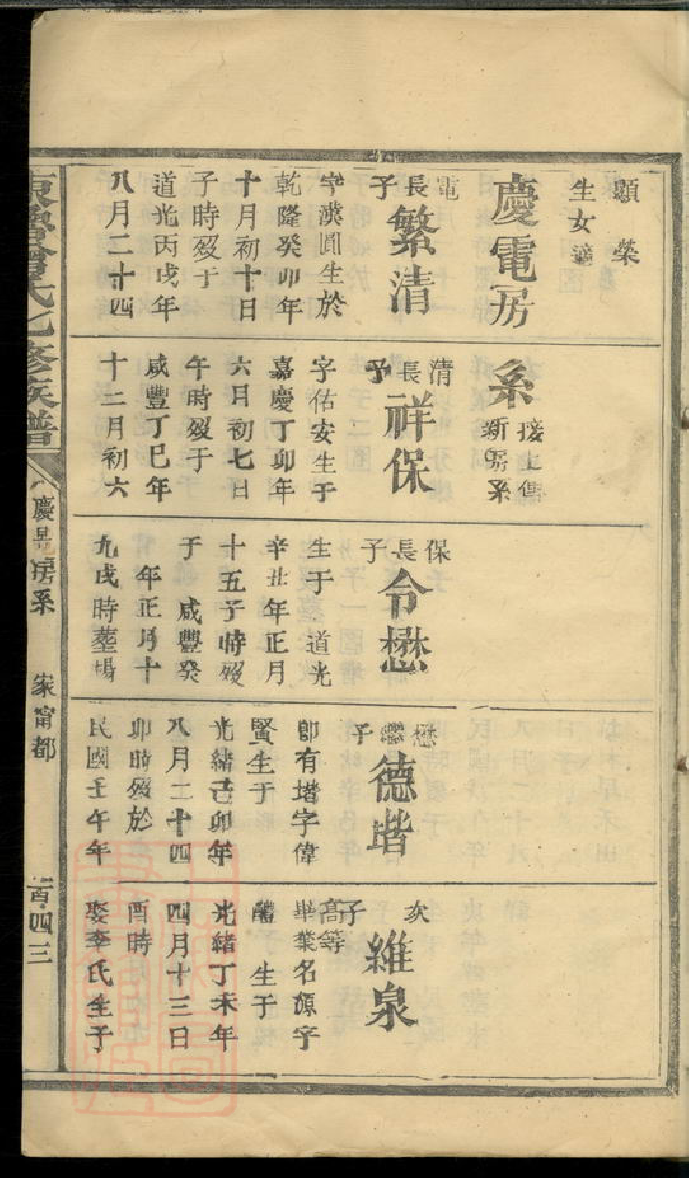 顯榮
生女適
慶電房
系
接上舊
新房系
電長子
繁清
字漢圓生於
乾隆癸卯年
十月初十日
子時歿于
道光丙戌年
八月二十四
清長子
祥保
字佑安生于
嘉慶丁卯年
六日初七日
午時歿于
咸豐丁巳年
十二月初六
保長子
令懋
生于道光
辛丑年正月
十五子時歿
于咸豐癸
年正月十
九戌時葬楊
懋繼子
德堦
卽有堦字偉
賢生于
光緒己卯年
八月二十四
卯時歿於
民國壬午年
次子
維泉
高等
畢業名源字
生于
光緒丁未年
四月十三日
酉時
娶李氏生于
東魯曾氏七修族譜
八
慶昇房系
家甯都
一百四三